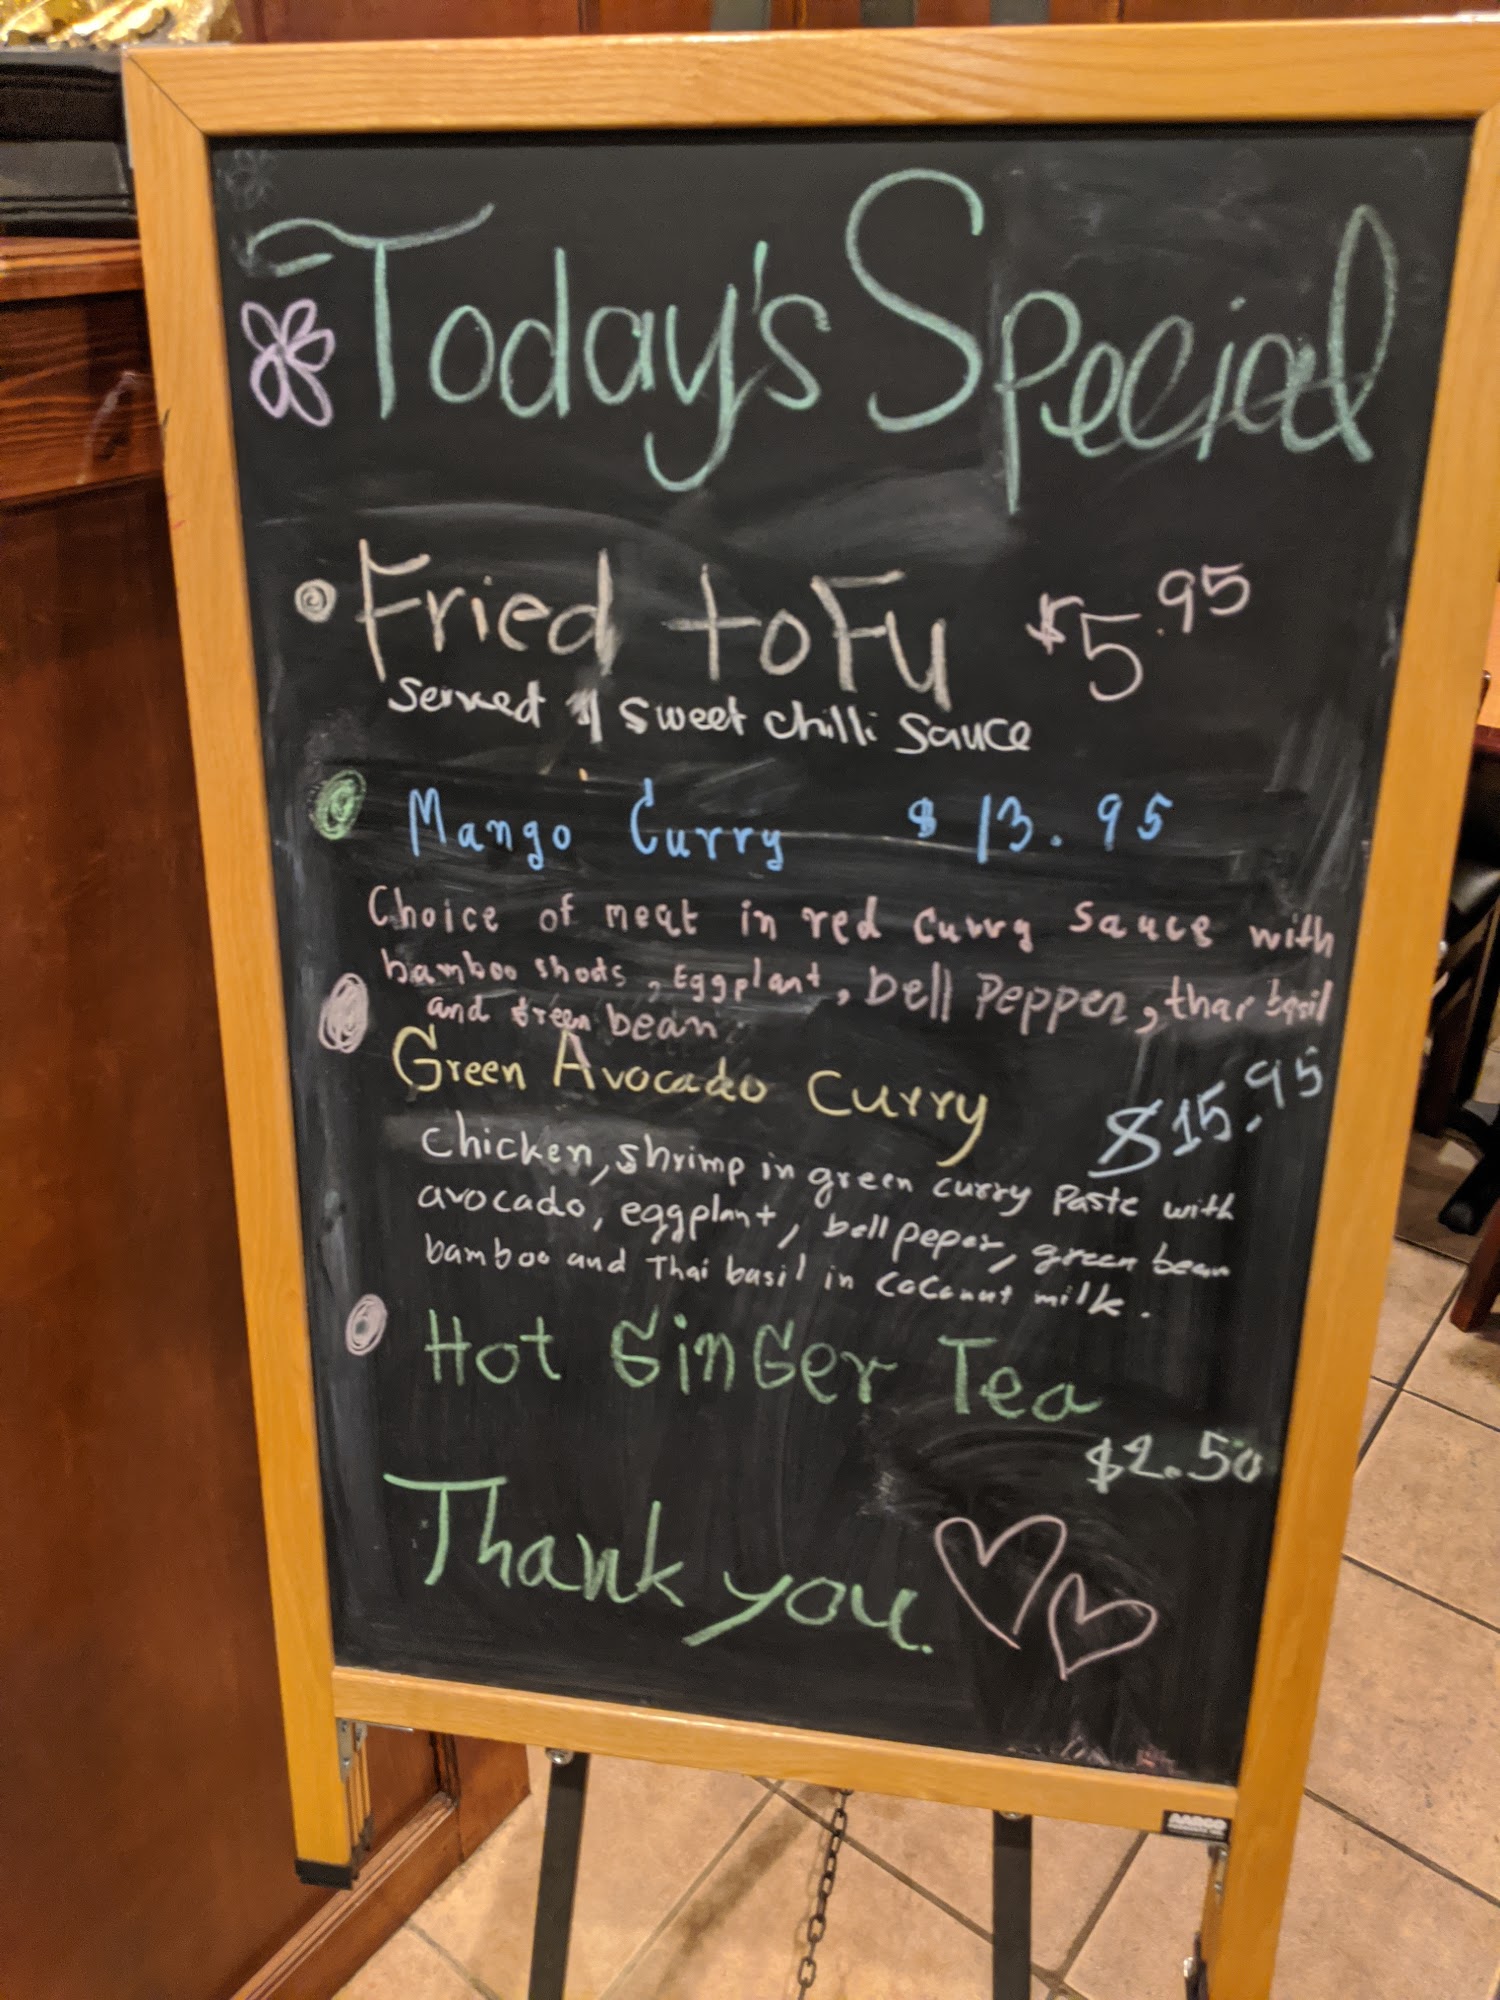 Today's Special
Fried toFu $5.95
Served sweet chilli sauce
Mango Curry $13.95
Choice of meat in red curry sauce with
bamboo shots, Eggplant, bell Pepper, thai basil
and green bean
Green Avocado Curry $15.95
chicken, shrimp in green curry Paste with
avocado, eggplant, bell peper, green bean
bamboo and Thai basil in coconut milk.
Hot GinGer Tea
$2.50
Thank you.
AARCO